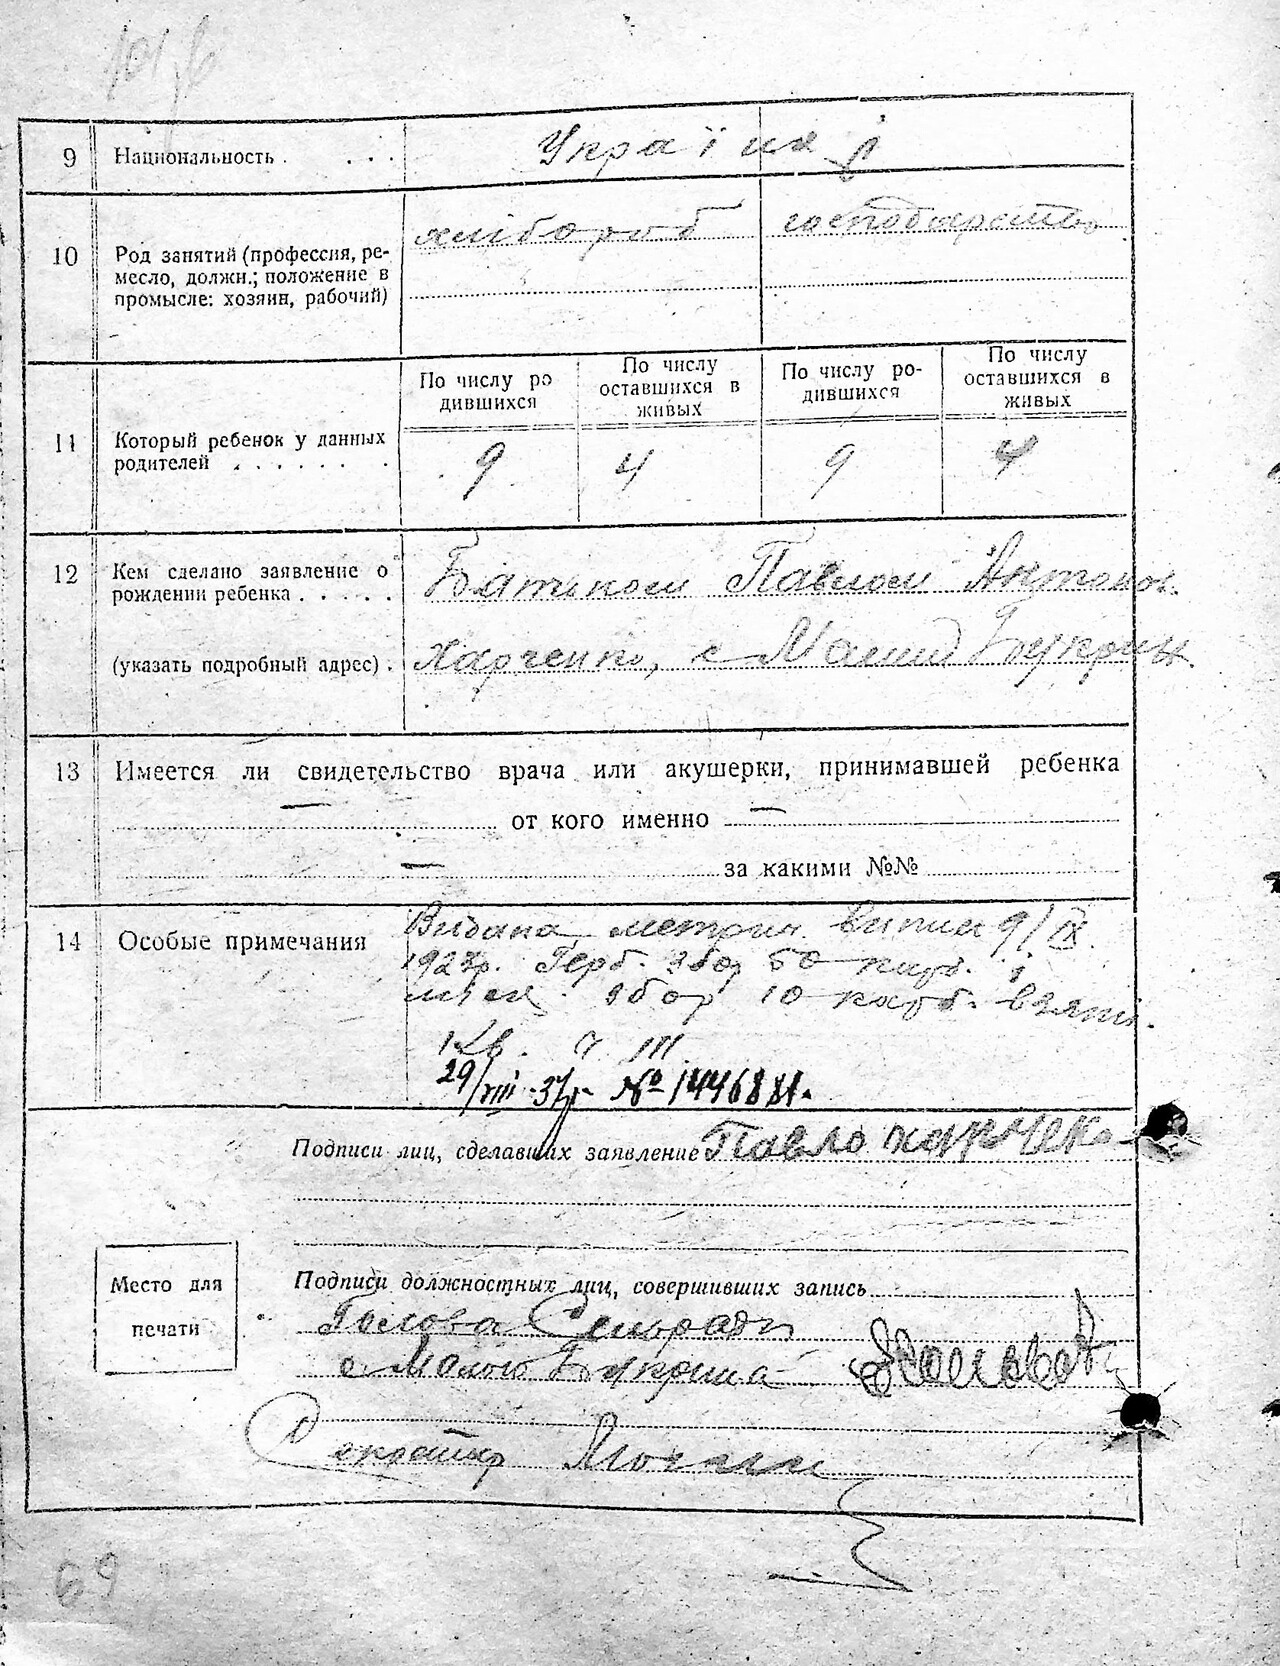 9 Национальность . . . . Україна
10 Род занятий (профессия, ре-
месло, должн.; положение в
промысле: хозяин, рабочий)
хлібороб господарство
По числу ро
дившихся
По числу
оставшихся в
живых
По числу ро-
дившихся
По числу
оставшихся в
живых
11 Который ребенок у данных
родителей . . . . . . .
9 4 9 4
12 Кем сделано заявление о
рождении ребенка . . . . .
(указать подробный адрес) .
Батьком Павлом Антонов.
Харченко, с Малий Букрин
13 Имеется ли свидетельство врача или акушерки, принимавшей ребенка
— от кого именно —
— за какими №№
14 Особые примечания
Видана метрич. випис 9/IX.
192 р. Герб. збор 50 карб. і
місц. збор 10 карб. взято.
29/VIII-37г. №
Подписи лиц, сделавших заявление Павло
Место для
печати
Подписи должностных лиц, совершивших запись
Голова Сельради
с Малого Букрина
Секретар
69